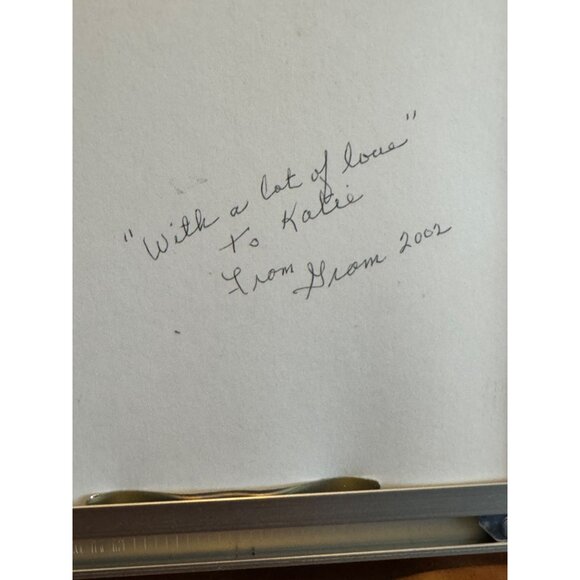 "With a lot of love"
to Katie
From Grom 2002